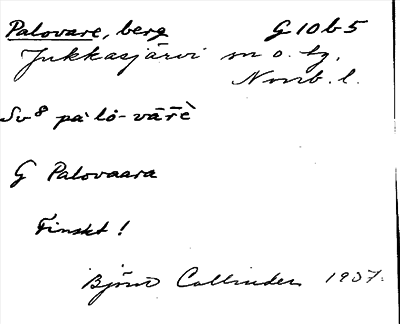 Palovare, berg G 10 b 5
Jukkasjärvi sn o. tg.
Norrb. l.
Sv 8 pa`lo-vārè
G Palovaara
Finskt!
Björn Collinder 1937.